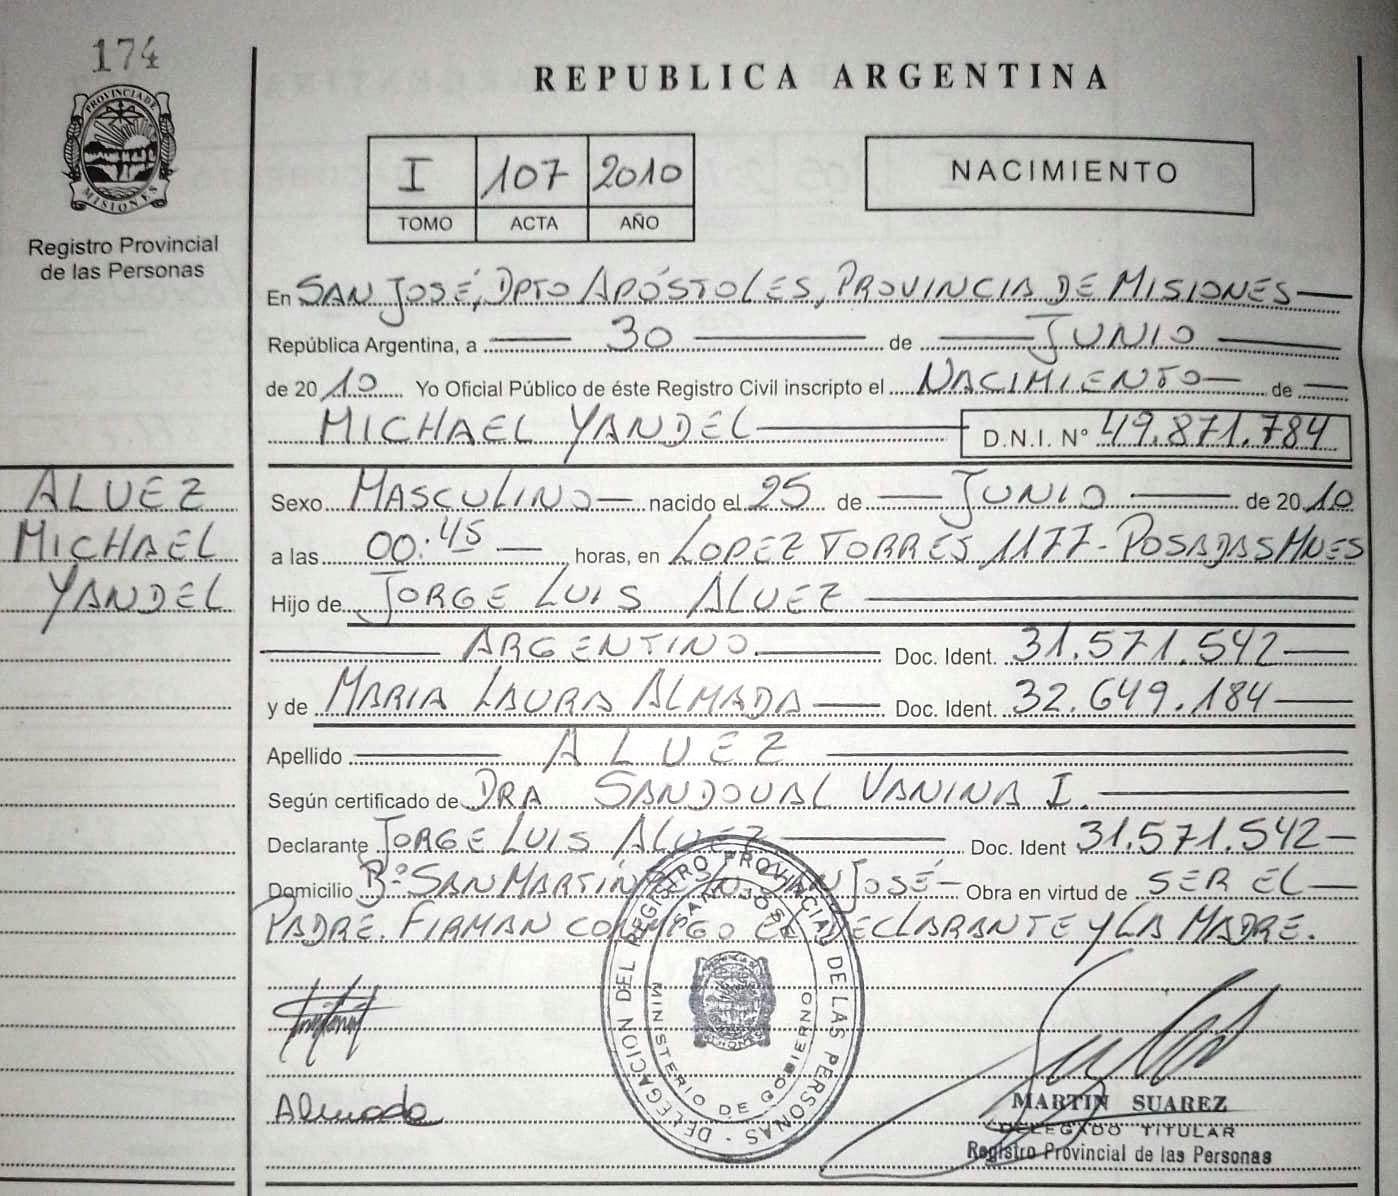 174
PROVINCIA DE
MISIONES
Registro Provincial
de las Personas
REPUBLICA ARGENTINA
I 107 2010
TOMO ACTA AÑO
NACIMIENTO
En SAN JOSÉ, DPTO APÓSTOLES, PROVINCIA DE MISIONES
República Argentina, a 30 de JUNIO
de 2010 Yo Oficial Público de éste Registro Civil inscripto el NACIMIENTO de
MICHAEL YANDEL D.N.I. Nº 49.871.784
ALVEZ
MICHAEL
YANDEL
Sexo MASCULINO nacido el 25 de JUNIO de 2010
a las 00:45 horas, en LOPEZ TORRES 1177 - POSADAS MNES
Hijo de JORGE LUIS ALVEZ
ARGENTINO Doc. Ident. 31.571.542
y de MARIA LAURA ALMADA Doc. Ident. 32.649.184
Apellido ALVEZ
Según certificado de DRA SANDOVAL VANINA I.
Declarante JORGE LUIS ALVEZ Doc. Ident 31.571.542
Domicilio Bº SAN MARTÍN SAN JOSÉ Obra en virtud de SER EL
PADRE. FIRMAN CONMIGO EL DECLARANTE Y LA MADRE.
DELEGACION DEL REGISTRO PROVINCIAL DE LAS PERSONAS -
SAN JOSE
MINISTERIO DE GOBIERNO
Almada
MARTIN SUAREZ
DELEGADO TITULAR
Registro Provincial de las Personas